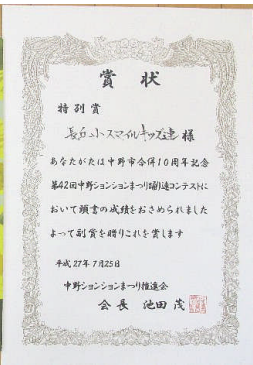 賞状
特別賞
長丘小スマイルキッズ連 様
あなたがたは中野市合併10周年記念
第42回中野ションションまつり踊り連コンテストに
おいて頭書の成績をおさめられました
よって副賞を贈りこれを賞します
平成27年7月25日
中野ションションまつり推進会
会長 池田 茂